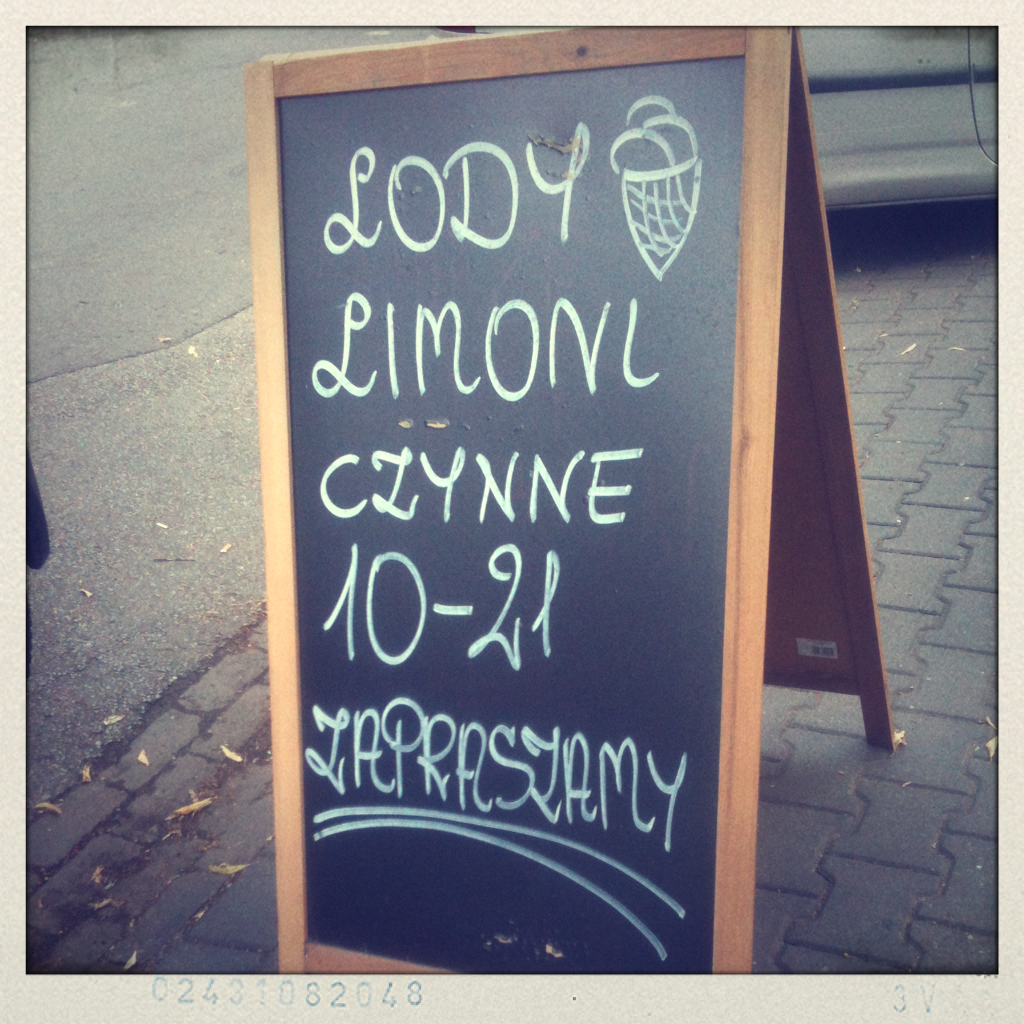 LODY
LIMONI
CZYNNE
10-21
ZAPRASZAMY
02431082048
3V